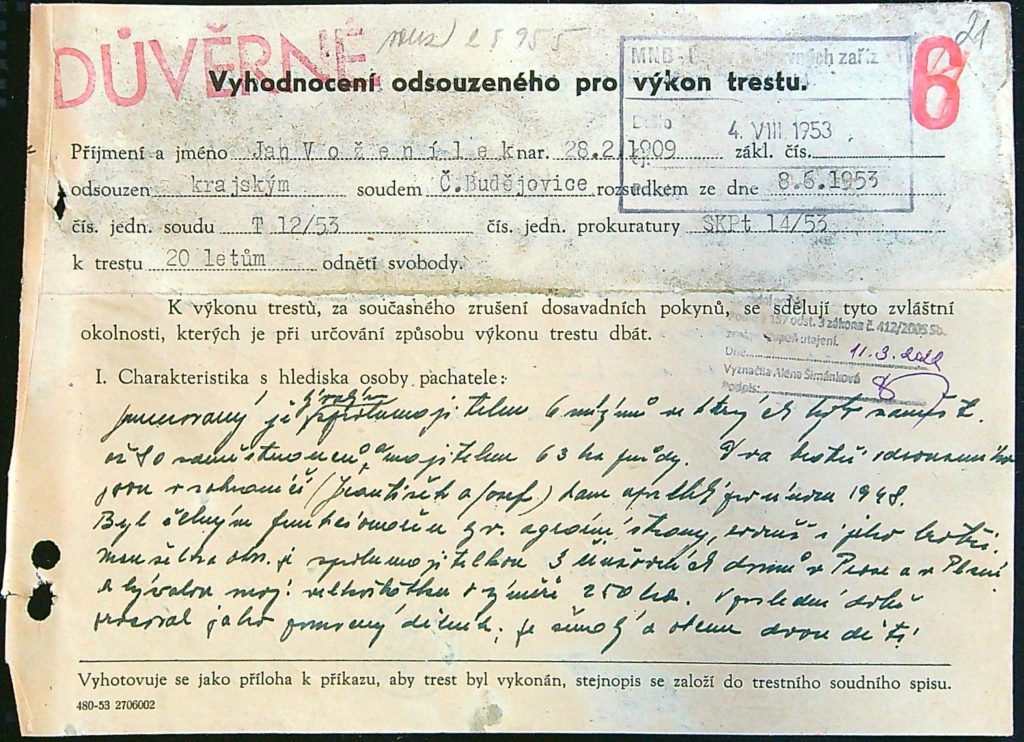 DŮVĚRNÉ
21
6
Vyhodnocení odsouzeného pro výkon trestu.
MNB
ných zaříz
Došlo
4. VIII 1953
Příjmení a jméno Jan Voženílek nar. 28.2.1909 zákl. čís.
odsouzen krajským soudem Č.Budějovice rozsudkem ze dne 8.6.1953
čís. jedn. soudu T 12/53 čís. jedn. prokuratury SKPt 14/53
k trestu 20 letům odnětí svobody.
K výkonu trestů, za současného zrušení dosavadních pokynů, se sdělují tyto zvláštní
okolnosti, kterých je při určování způsobu výkonu trestu dbát.
odst. 3 zákona č. 412/2005 Sb.
utajení.
Dne 11.3.2022
Vyznačila Alena Šimánková
Podpis:
I. Charakteristika s hlediska osoby pachatele:
Jmenovaný je spolumajitelem 6 mlýnů ve kterých bylo zaměst.
až 80 zaměstnanců a majitelem 63 ha půdy. Dva bratři odsouzeného
jsou v zahraničí (František a Josef) kam uprchli po únoru 1948.
Byl čelným funkcionářem býv. agrární strany, rovněž i jeho bratři.
Manželka obv. je spolumajitelkou 3 činžovních domů v Praze a v Plzni
a bývalou maj. velkostatku výměře 250 ha. V poslední době
pracoval jako pomocný dělník, je ženatý a otcem dvou dětí.
Vyhotovuje se jako příloha k příkazu, aby trest byl vykonán, stejnopis se založí do trestního soudního spisu.
480-53 2706002